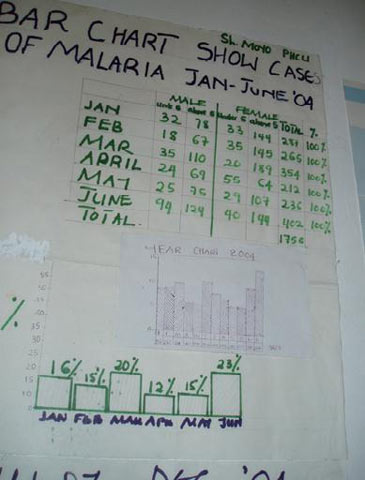 SL. MOYO PHCU
BAR CHART SHOW CASES
OF MALARIA JAN-JUNE '04
MALE FEMALE TOTAL %
Under 5 above 5 Under 5 above 5
JAN 32 78 33 144 287 100%
FEB 18 67 35 145 265 100%
MAR 35 110 20 189 354 100%
APRIL 24 69 55 64 212 100%
MAY 25 75 29 107 236 100%
JUNE 94 124 40 144 402 100%
TOTAL 1756
YEAR 2004
%
16% 13% 20% 12% 15% 23%
JAN FEB MAR APR MAY JUN